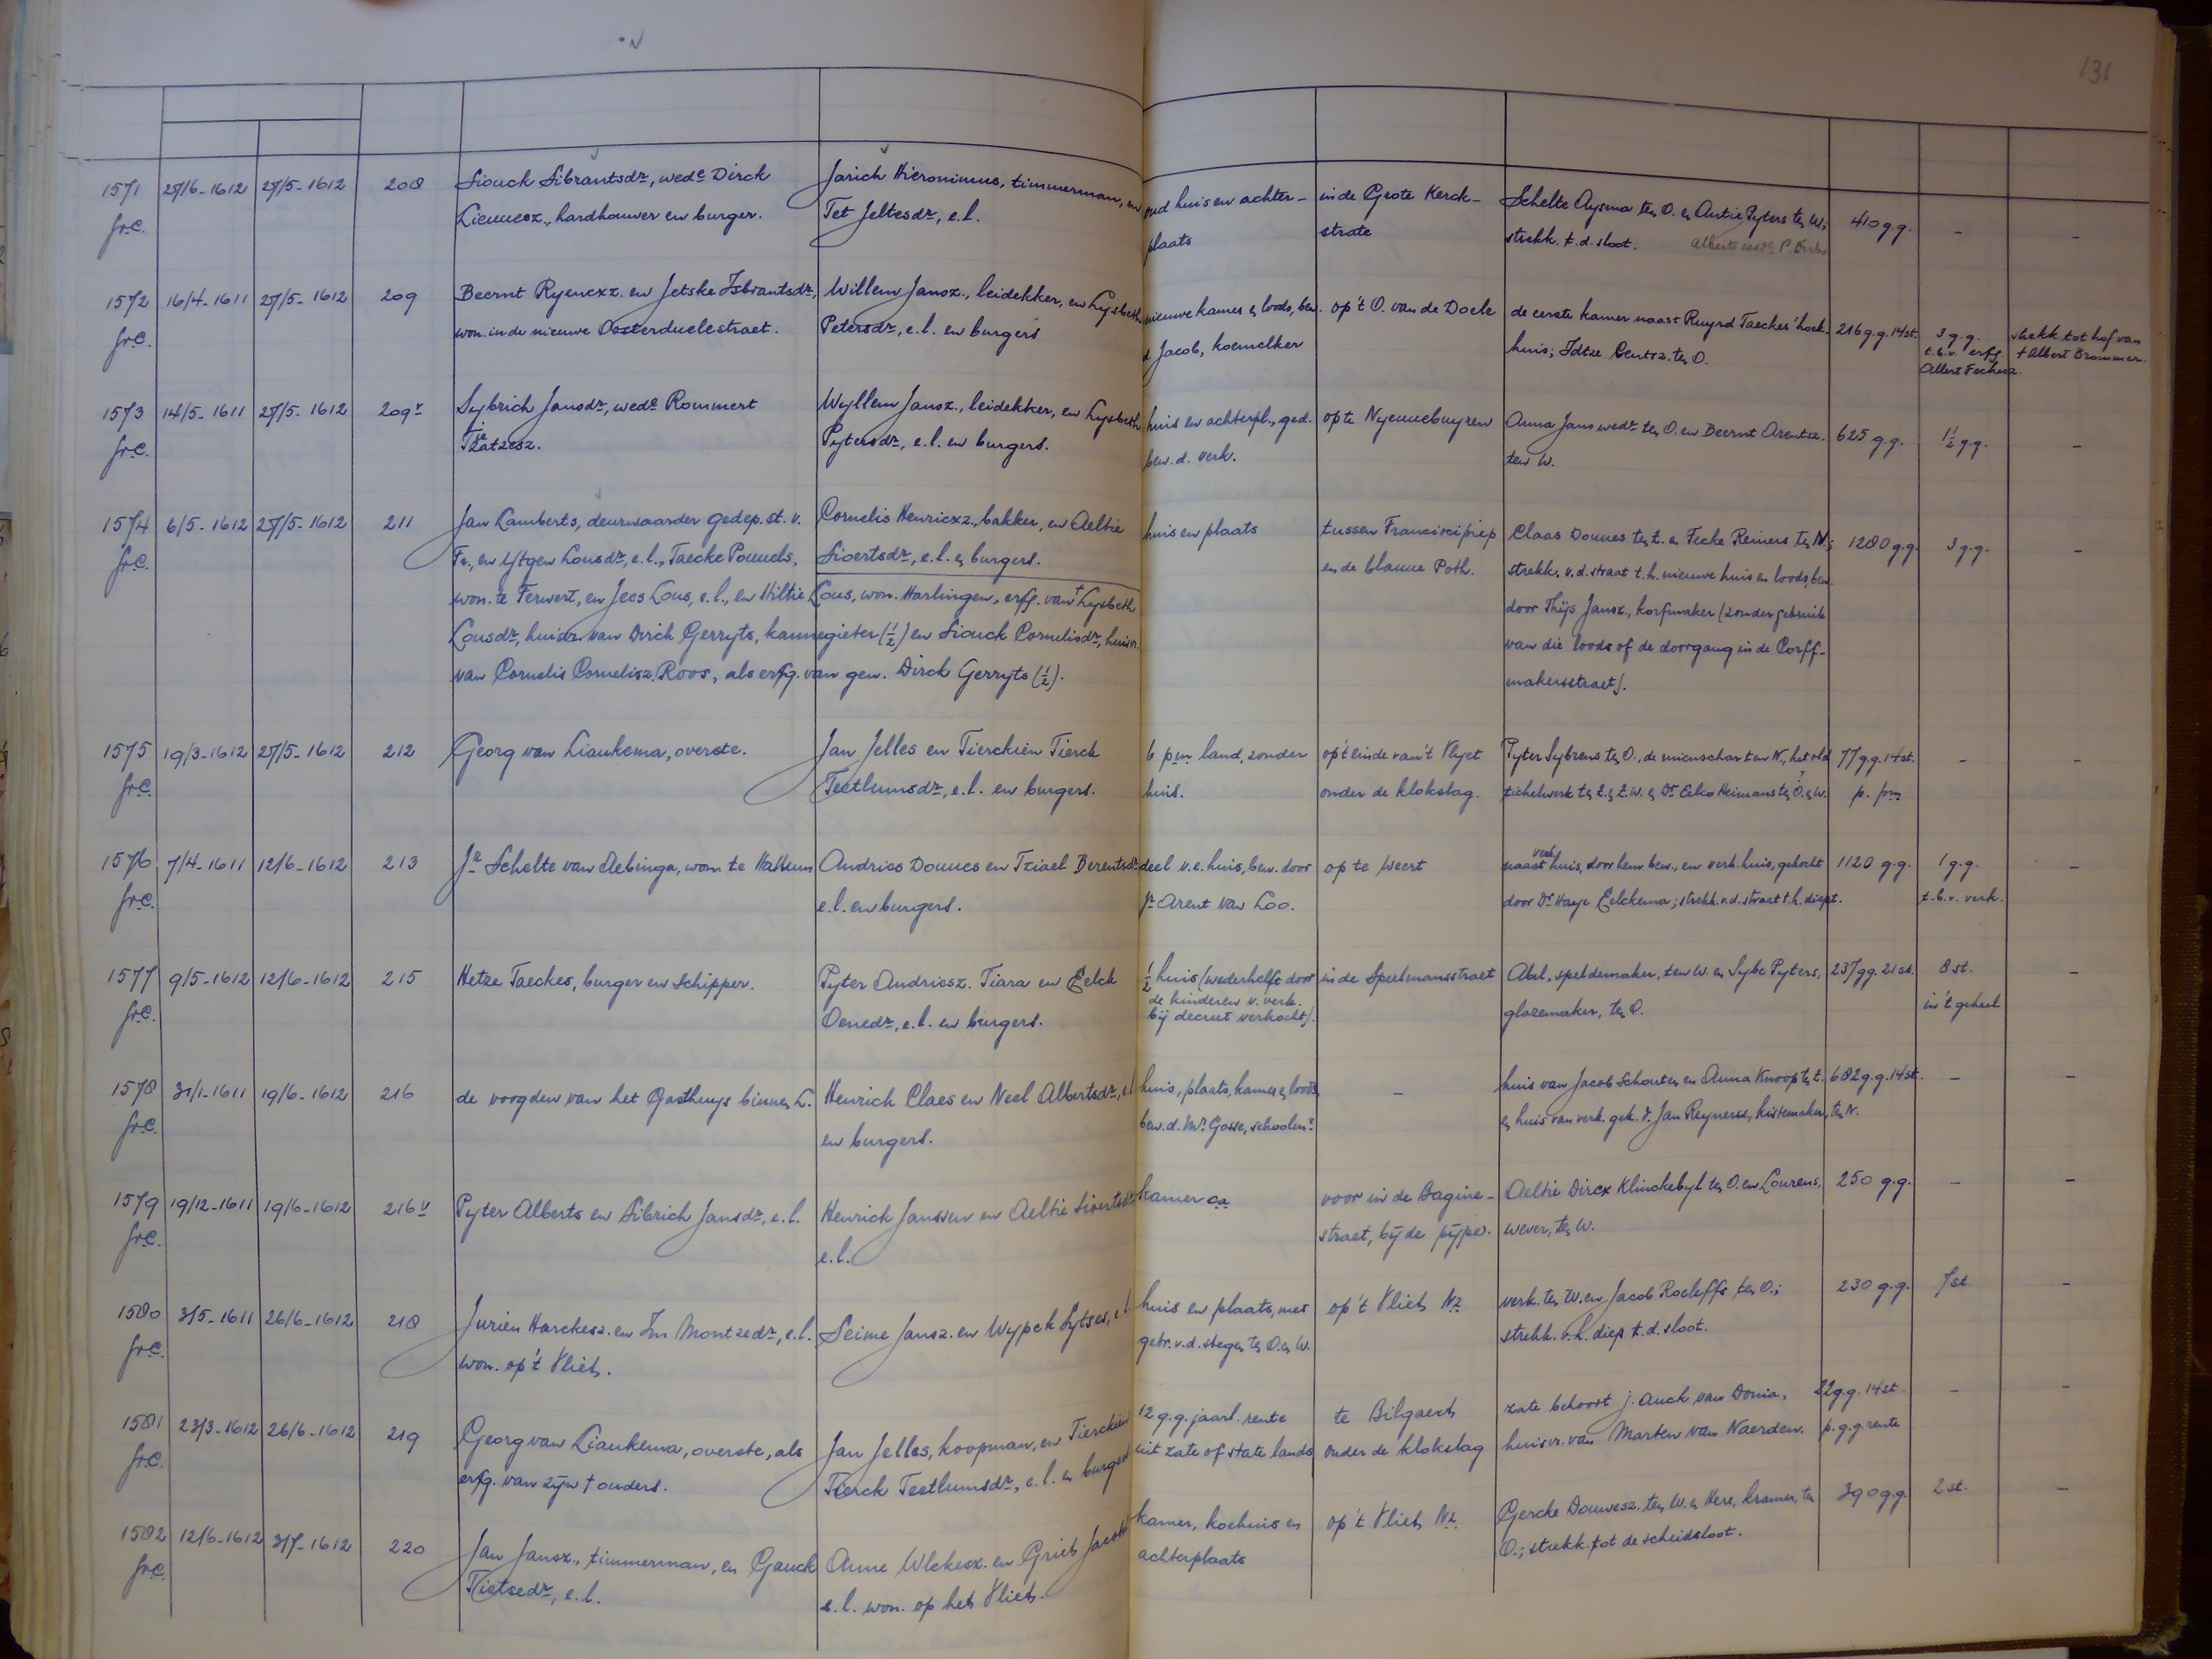 131
1571 27/6-1612 27/5-1612 208 Siouck Sibrantsdr, wede Dirck Jarich Hieronimus, timmerman, en oud huis en achter- in de Grote Kerck- Schelte Aysma ten O. en Antie Pyters ten W; 410 g.g. - -
fr.e. Lieuuesz., hardhouwer en burger. Tet Jeltesdr, e.l. plaats strate strekk. t.d. sloot. Alberts wede P.
1572 16/4-1611 27/5-1612 209 Beernt Ryencxz. en Jetske Isbrantsdr, Willem Jansz., leidekker, en Lysbeth nieuwe kamer en loods, bew. op 't O. van de Doele de eerste kamer naast Ruyrd Taeckes' hoek- 216 g.g. 14 st. 3 g.g. strekk. tot hof van
fr.e. won. in de nieuwe Oosterduelestraet. Petersdr, e.l. en burgers d. Jacob, koemelker huis; Idtze Centsz. ten O. t.b.v. erfg. † Albert Brommer.
Albert Feckesz.
1573 14/5-1611 27/5-1612 209v Sybrich Jansdr, wede Rommert Wyllem Jansz., leidekker, en Lysbeth huis en achterpl., ged. op te Nyeuuebuyren Anna Jans wedr ten O. en Beernt Arentsz. 625 g.g. 1½ g.g. -
fr.e. Tzatzesz. Pytersdr, e.l. en burgers. bew. d. verk. ten W.
1574 6/5-1612 27/5-1612 211 Jan Lamberts, deurwaarder gedep. st. v. Cornelis Henricxz., bakker, en Aeltie huis en plaats tussen Francisci piep Claas Douues ten Z. en Fecke Reiners ten N; 1280 g.g. 3 g.g. -
fr.e. Fr., en Lytgen Lousdr, e.l., Taecke Pouuels, Sioertsdr, e.l. en burgers. en de blauue Poth. strekk. v.d. straat t.h. nieuwe huis en loods, bew.
won. te Ferwert, en Jees Lous, e.l., en Hiltie Lous, won. Harlingen, erfg. van † Lysbeth door Thijs Jansz., korfmaker (zonder gebruik
Lousdr, huisvr. van Dirck Gerryts, kannegieter (½) en Siouck Cornelisdr, huisvr. van die loods of de doorgang in de Corff-
van Cornelis Cornelisz. Roos, als erfg. van gen. Dirck Gerryts (½). makersstraet).
1575 19/3-1612 27/5-1612 212 Georg van Liaukema, overste. Jan Jelles en Tierckien Tierck 6 pm land, zonder op 't einde van 't Vlyet Pyter Sybrens ten O., de mienschar ten N., het old 77 g.g. 14 st. - -
fr.e. Teetlumsdr, e.l. en burgers. huis. onder de klokslag. tichelwerk ten Z. en Z.W. en Dr Eelco Heimans ten O. en W. p. pm
1576 7/4-1611 12/6-1612 213 Jr Schelte van Aebinga, won. te Hallum Andries Douues en Tziael Berentsdr, deel v.e. huis, bew. door op te Weert naast verk. huis, door hem bew., en verk. huis, gekocht 1120 g.g. 1 g.g. -
fr.e. e.l. en burgers. Jr Arent van Loo. door Dr Haye Eelckema; strekk. v.d. straat t.h. diept. t.b.v. verk.
1577 9/5-1612 12/6-1612 215 Hetze Taeckes, burger en schipper. Pyter Andriesz. Tiara en Eelck ½ huis (wederhelft door in de Speelmansstraet Abel, speldemaker, ten W. en Sybe Pyters, 237 gg. 21 st. 8 st. -
de kinderen v. verk.
fr.e. Oenedr, e.l. en burgers. bij decreet verkocht). glazemaker, ten O. in 't geheel
1578 31/1-1611 19/6-1612 216 de voogden van het Gasthuys binnen L. Henrick Claes en Neel Albertsdr, e.l. huis, plaats, kamer en loods, - huis van Jacob Schouten en Anna Knoop ten Z. 682 g.g. 14 st. - -
fr.e. en burgers. bew. d. Mr Gosse, schoolmr en huis van verk. geh. d. Jan Reynersz., kistemaker, ten N.
1579 19/12-1611 19/6-1612 216v Pyter Alberts en Sibrich Jansdr, e.l. Henrick Janssen en Aeltie Sioertsdr kamer ca voor in de Bagine- Aeltie Dircx Klinckebyl ten O. en Lourens, 250 g.g. - -
fr.e. e.l. straet, bij de pijpe. wever, ten W.
1580 3/5-1611 26/6-1612 218 Jurien Harckesz. en Im Montzedr, e.l. Seime Jansz. en Wypck Sytses, e.l. huis en plaats, met op 't Vliet Nz verk. ten W. en Jacob Roeleffs ten O.; 230 g.g. 7 st. -
fr.e. won. op 't Vliet. gebr. v.d. stegen ten O. en W. strekk. v.h. diep t.d. sloot.
1581 23/3-1612 26/6-1612 219 Georg van Liaukema, overste, als Jan Jelles, koopman, en Tierckien 12 g.g. jaarl. rente te Bilgaert zate behoort j. Auck van Donia, 22 g.g. 14 st. - -
fr.e. erfg. van zijn † ouders. Tierck Teetlumsdr, e.l. en burgers uit zate of state lands onder de klokslag huisvr. van Marten van Naerden. p. g.g. rente
1582 12/6-1612 3/7-1612 220 Jan Jansz., timmerman, en Gauck Anne Wlckesz. en Griet Jacobs kamer, koehuis en op 't Vliet Nz. Gercke Douwesz. ten W. en Here, kramer, ten 390 g.g. 2 st. -
fr.e. Tietsedr, e.l. e.l. won. op het Vliet. achterplaats O.; strekk. tot de scheidsloot.